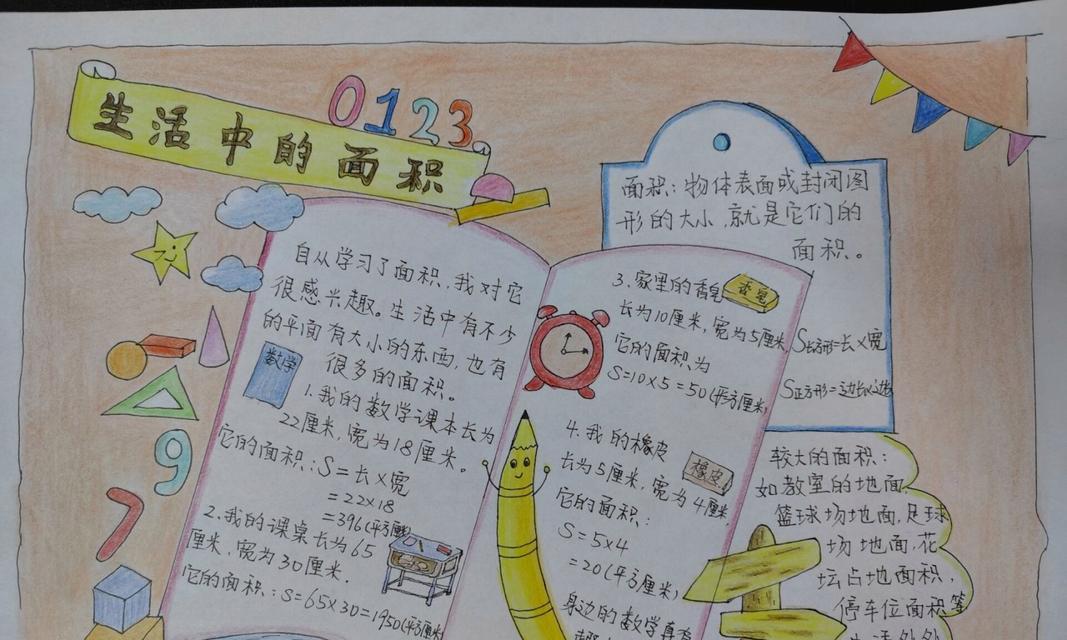 生活中的面积
0123
自从学习了面积,我对它
很感兴趣。生活中有不少
的平面有大小的东西,也有
很多的面积。
数学
1.我的数学课本长为
22厘米,宽为18厘米。
它的面积:S=长×宽
=22×18
=396(平方厘米)
2.我的课桌长为65
厘米,宽为30厘米.
它的面积:S=65×30=1950(平方厘米)
3.家里的香皂
香皂
长为10厘米,宽为5厘米,
它的面积为
S=10×5=50(平方厘米)
4.我的橡皮
橡皮
长为5厘米,宽为4厘米
它的面积:
S=5×4
=20(平方厘米)
身边的数学真有
面积:物体表面或封闭图
形的大小,就是它们的
面积。
S长方形=长×宽
S正方形=边长×边长
较大的面积:
如教室的地面,
篮球场地面,足球
场地面,花
坛占地面积,
停车位面积等
9
7